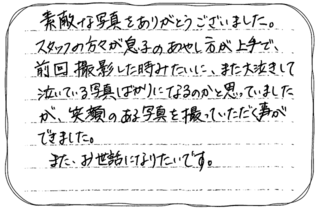 素敵な写真をありがとうございました。
スタッフの方々が息子のあやし方が上手で、
前回撮影した時みたいに、また大泣きして
泣いている写真ばかりになるのかと思っていました
が、笑顔のある写真を撮っていただく事が
できました。
また、お世話になりたいです。